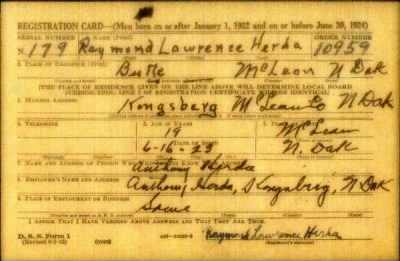 REGISTRATION CARD—(Men born on or after January 1, 1922 and on or before June 30, 1924)
SERIAL NUMBER 1. NAME (Print) ORDER NUMBER
N 179 Raymond Lawrence Herda 10959
2. PLACE OF RESIDENCE (Print)
Butte McLean N Dak
[THE PLACE OF RESIDENCE GIVEN ON THE LINE ABOVE WILL DETERMINE LOCAL BOARD
JURISDICTION; LINE 2 OF REGISTRATION CERTIFICATE WILL BE IDENTICAL]
3. MAILING ADDRESS
Kongsberg McLean Co N Dak
4. TELEPHONE 5. AGE IN YEARS 6. PLACE OF
19 McLean
DATE OF BIRTH
6-16-23 N. Dak
7. NAME AND ADDRESS OF PERSON WHO WILL ALWAYS KNOW YOUR ADDRESS
Anthony Herda
8. EMPLOYER'S NAME AND ADDRESS
Anthony, Herda, Kongsberg, N Dak
9. PLACE OF EMPLOYMENT OR BUSINESS
Same
I AFFIRM THAT I HAVE VERIFIED ABOVE ANSWERS AND THAT THEY ARE TRUE.
D. S. S. Form 1 Raymond Lawrence Herda
(over)